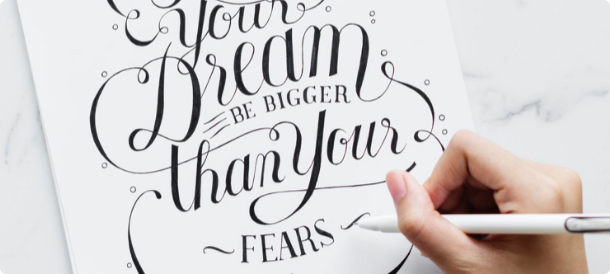 Your
Dream
BE BIGGER
than Your
~ FEARS ~